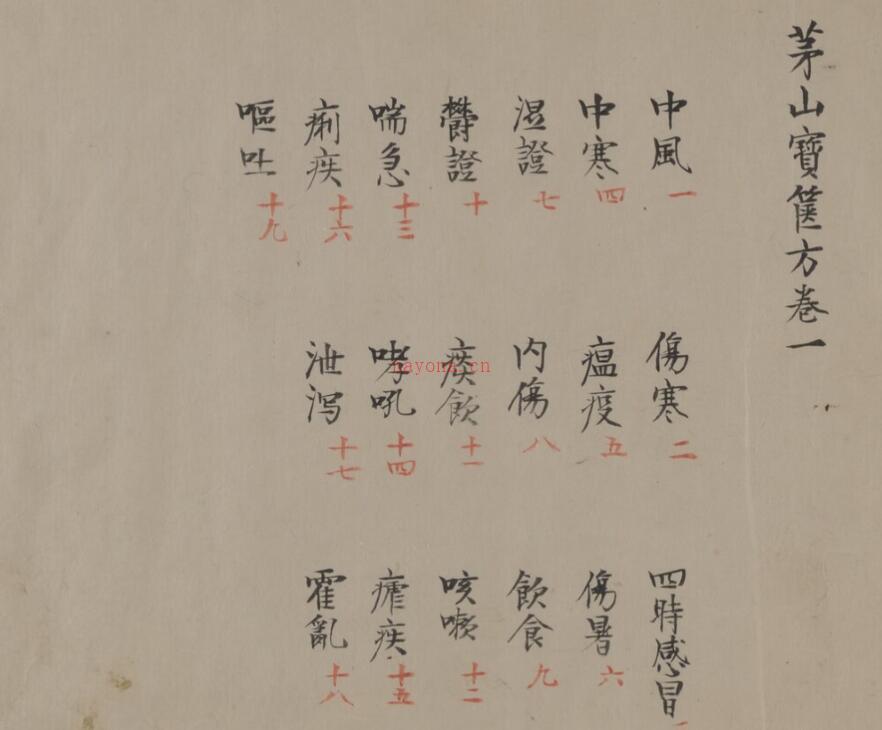 茅山寶篋方卷一
中風 一
傷寒 二
四時感冒
中寒 四
瘟疫 五
傷暑 六
湿證 七
内傷 八
飲食 九
欝證 十
痰飲 十一
咳嗽 十二
喘急 十三
哮吼 十四
瘧疾 十五
痢疾 十六
泄瀉 十七
霍亂 十八
嘔吐 十九
nayona.cn